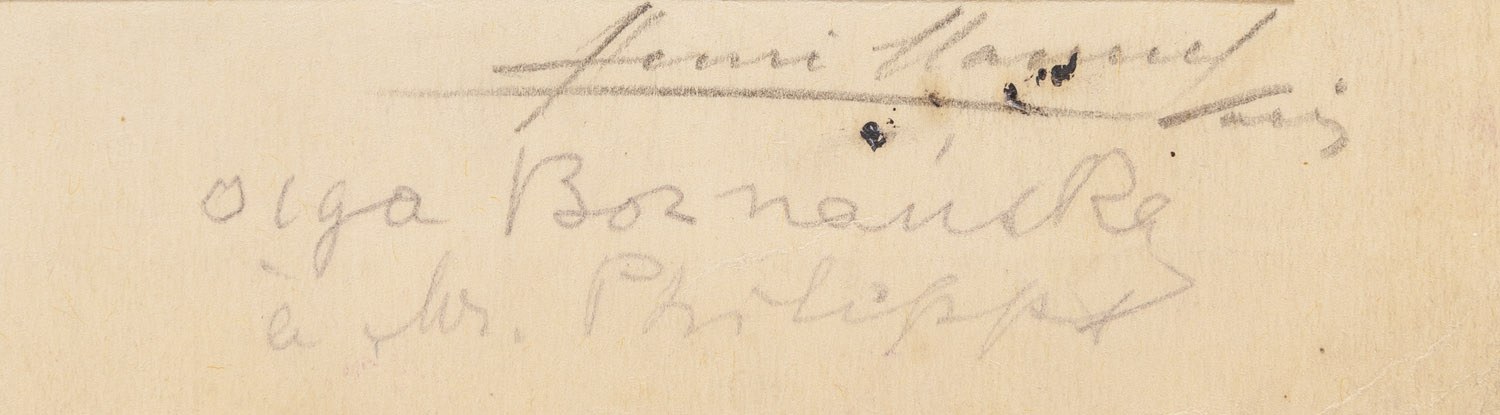 Henri
Olga Boznańska
à Mr. Philippe